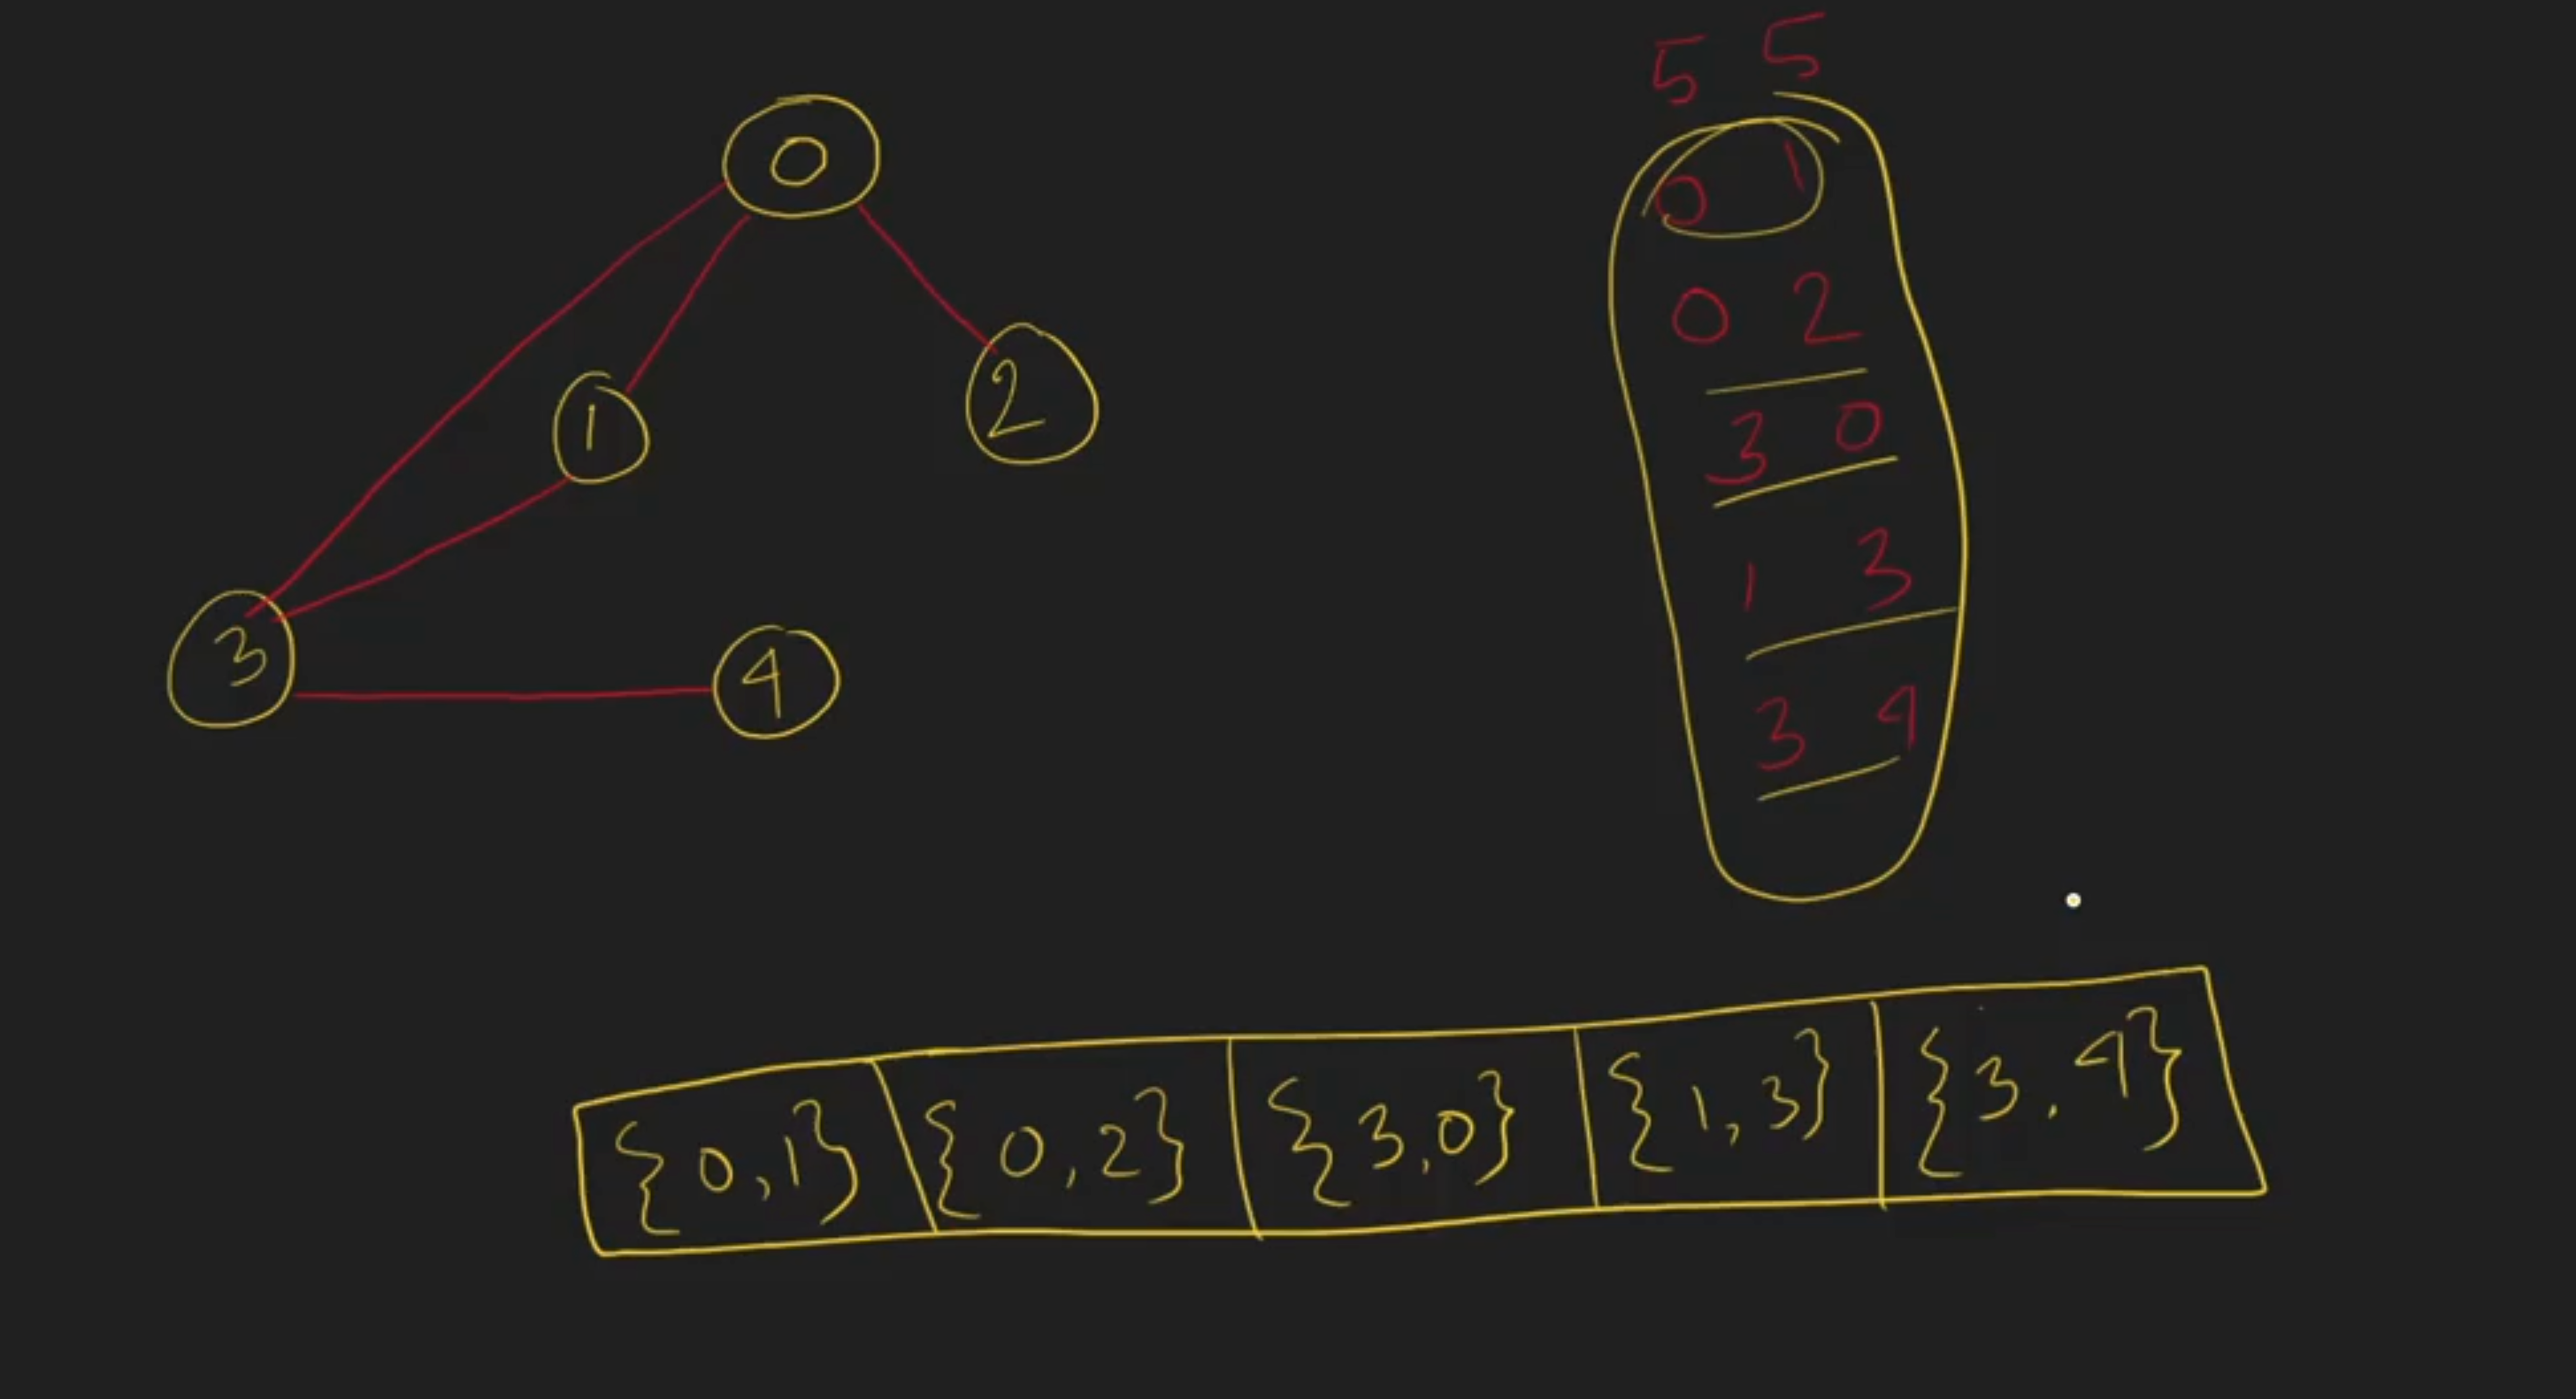 0
1
2
3
4
5 5
0 1
0 2
3 0
1 3
3 4
{0,1} {0,2} {3,0} {1,3} {3,4}